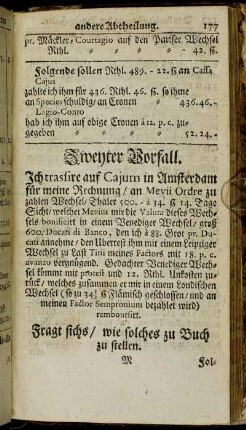 andere Abtheilung. 177
pr. Mäckler-Courtagio auf den Pariser Wechsel
Rthl. " " " " - 42. ß.
Folgende sollen Rthl. 489. - 22. ß an Cassa
Cajus
zahlte ich ihm für 436. Rthl. 46. ß. so ihme
an Species schuldig / an Cronen " 436.46.-
Lagio-Conto
hab ich ihm auf obige Cronen à 12. p. c. zu-
gegeben " " " " 52.24.-
Zweyter Vorfall.
Ich trassire auf Cajum in Amsterdam
für meine Rechnung / an Mevii Ordre zu
zahlen Wechsel / Thaler 500. - à 34. ß 14. Tage
Sicht / welcher Mevius mir die Valuta dieses Wech-
sels bonificirt in einem Venediger Wechsel / groß
600. Ducati di Banco, den ich à 88. Grot pr. Du-
cati annehme / den Überrest ihm mit einem Leipziger
Wechsel zu Last Titii meines Factors mit 18. p. c.
avanzo vergnügend. Gedachter Venediger Wech-
sel kommt mit protest und 12. Rthl. Unkosten zu-
rück / welches zusammen er mir in einem Londischen
Wechsel (so zu 34½ ß Flämisch geschlossen / und an
meinen Factor Sempronium bezahlet wird)
remboursirt.
Fragt sichs / wie solches zu Buch
zu stellen.
M Fol-